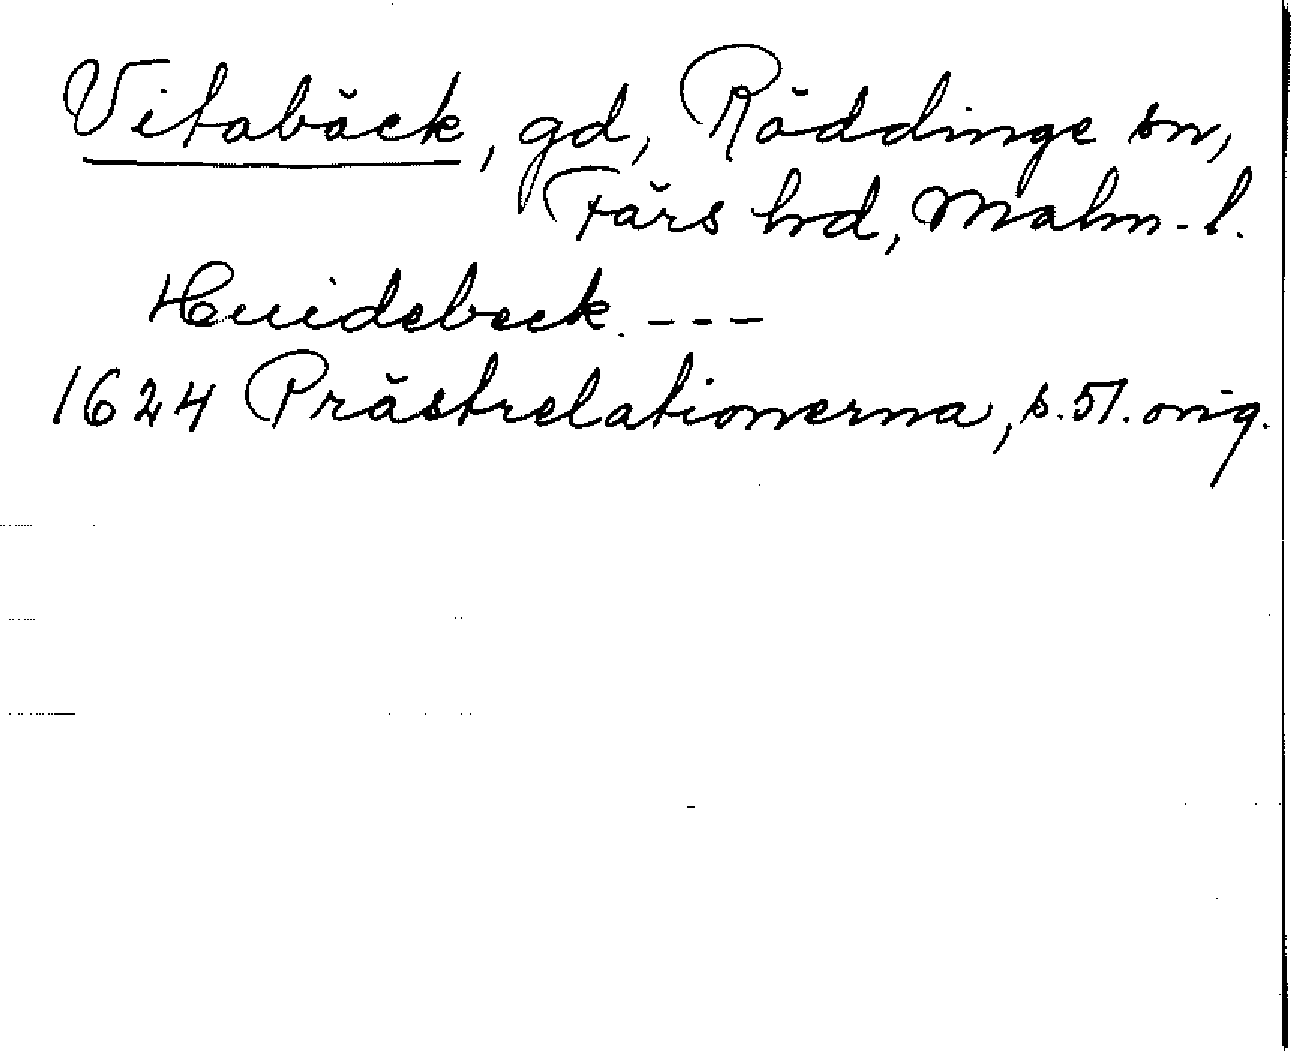 Vitabäck, gd, Röddinge sn,
Färs hd, Malm. l.
Huidebeck. ---
1624 Prästrelationerna, s. 51. orig.